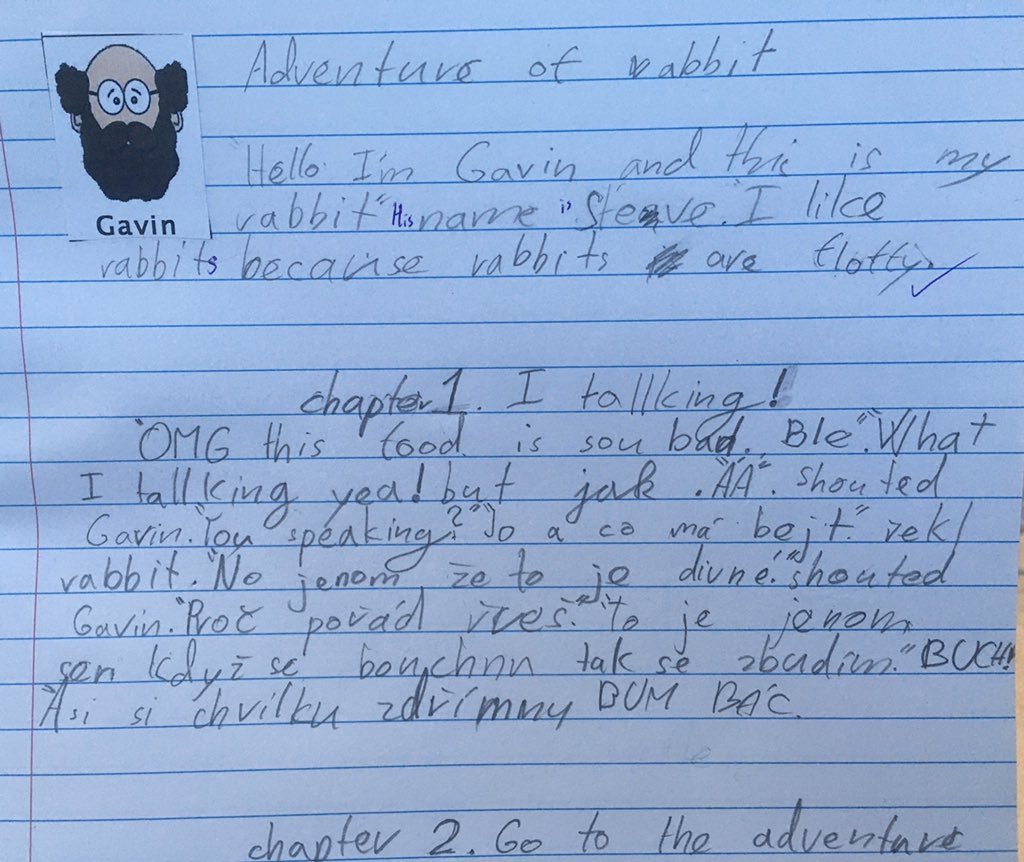 Adventure of rabbit
Gavin
"Hello I'm Gavin and this is my
rabbit" His name is "Steave". I like
rabbits because rabbits are flotty.
chapter 1. I tallking!
"OMG this food is sou bad. Ble". "What
I tallking yea! but jak . "ÁÁ". shouted
Gavin. "You speaking?" "Jo a co má bejt." řekl
rabbit. "No jenom, že to je divné." shouted
Gavin. "Proč pořád řveš." "To je jenom
sen když se bouchnu tak se zbudim." BUCH!
"Asi si chvilku zdřímnu BUM BÁC.
chapter 2. Go to the adventure